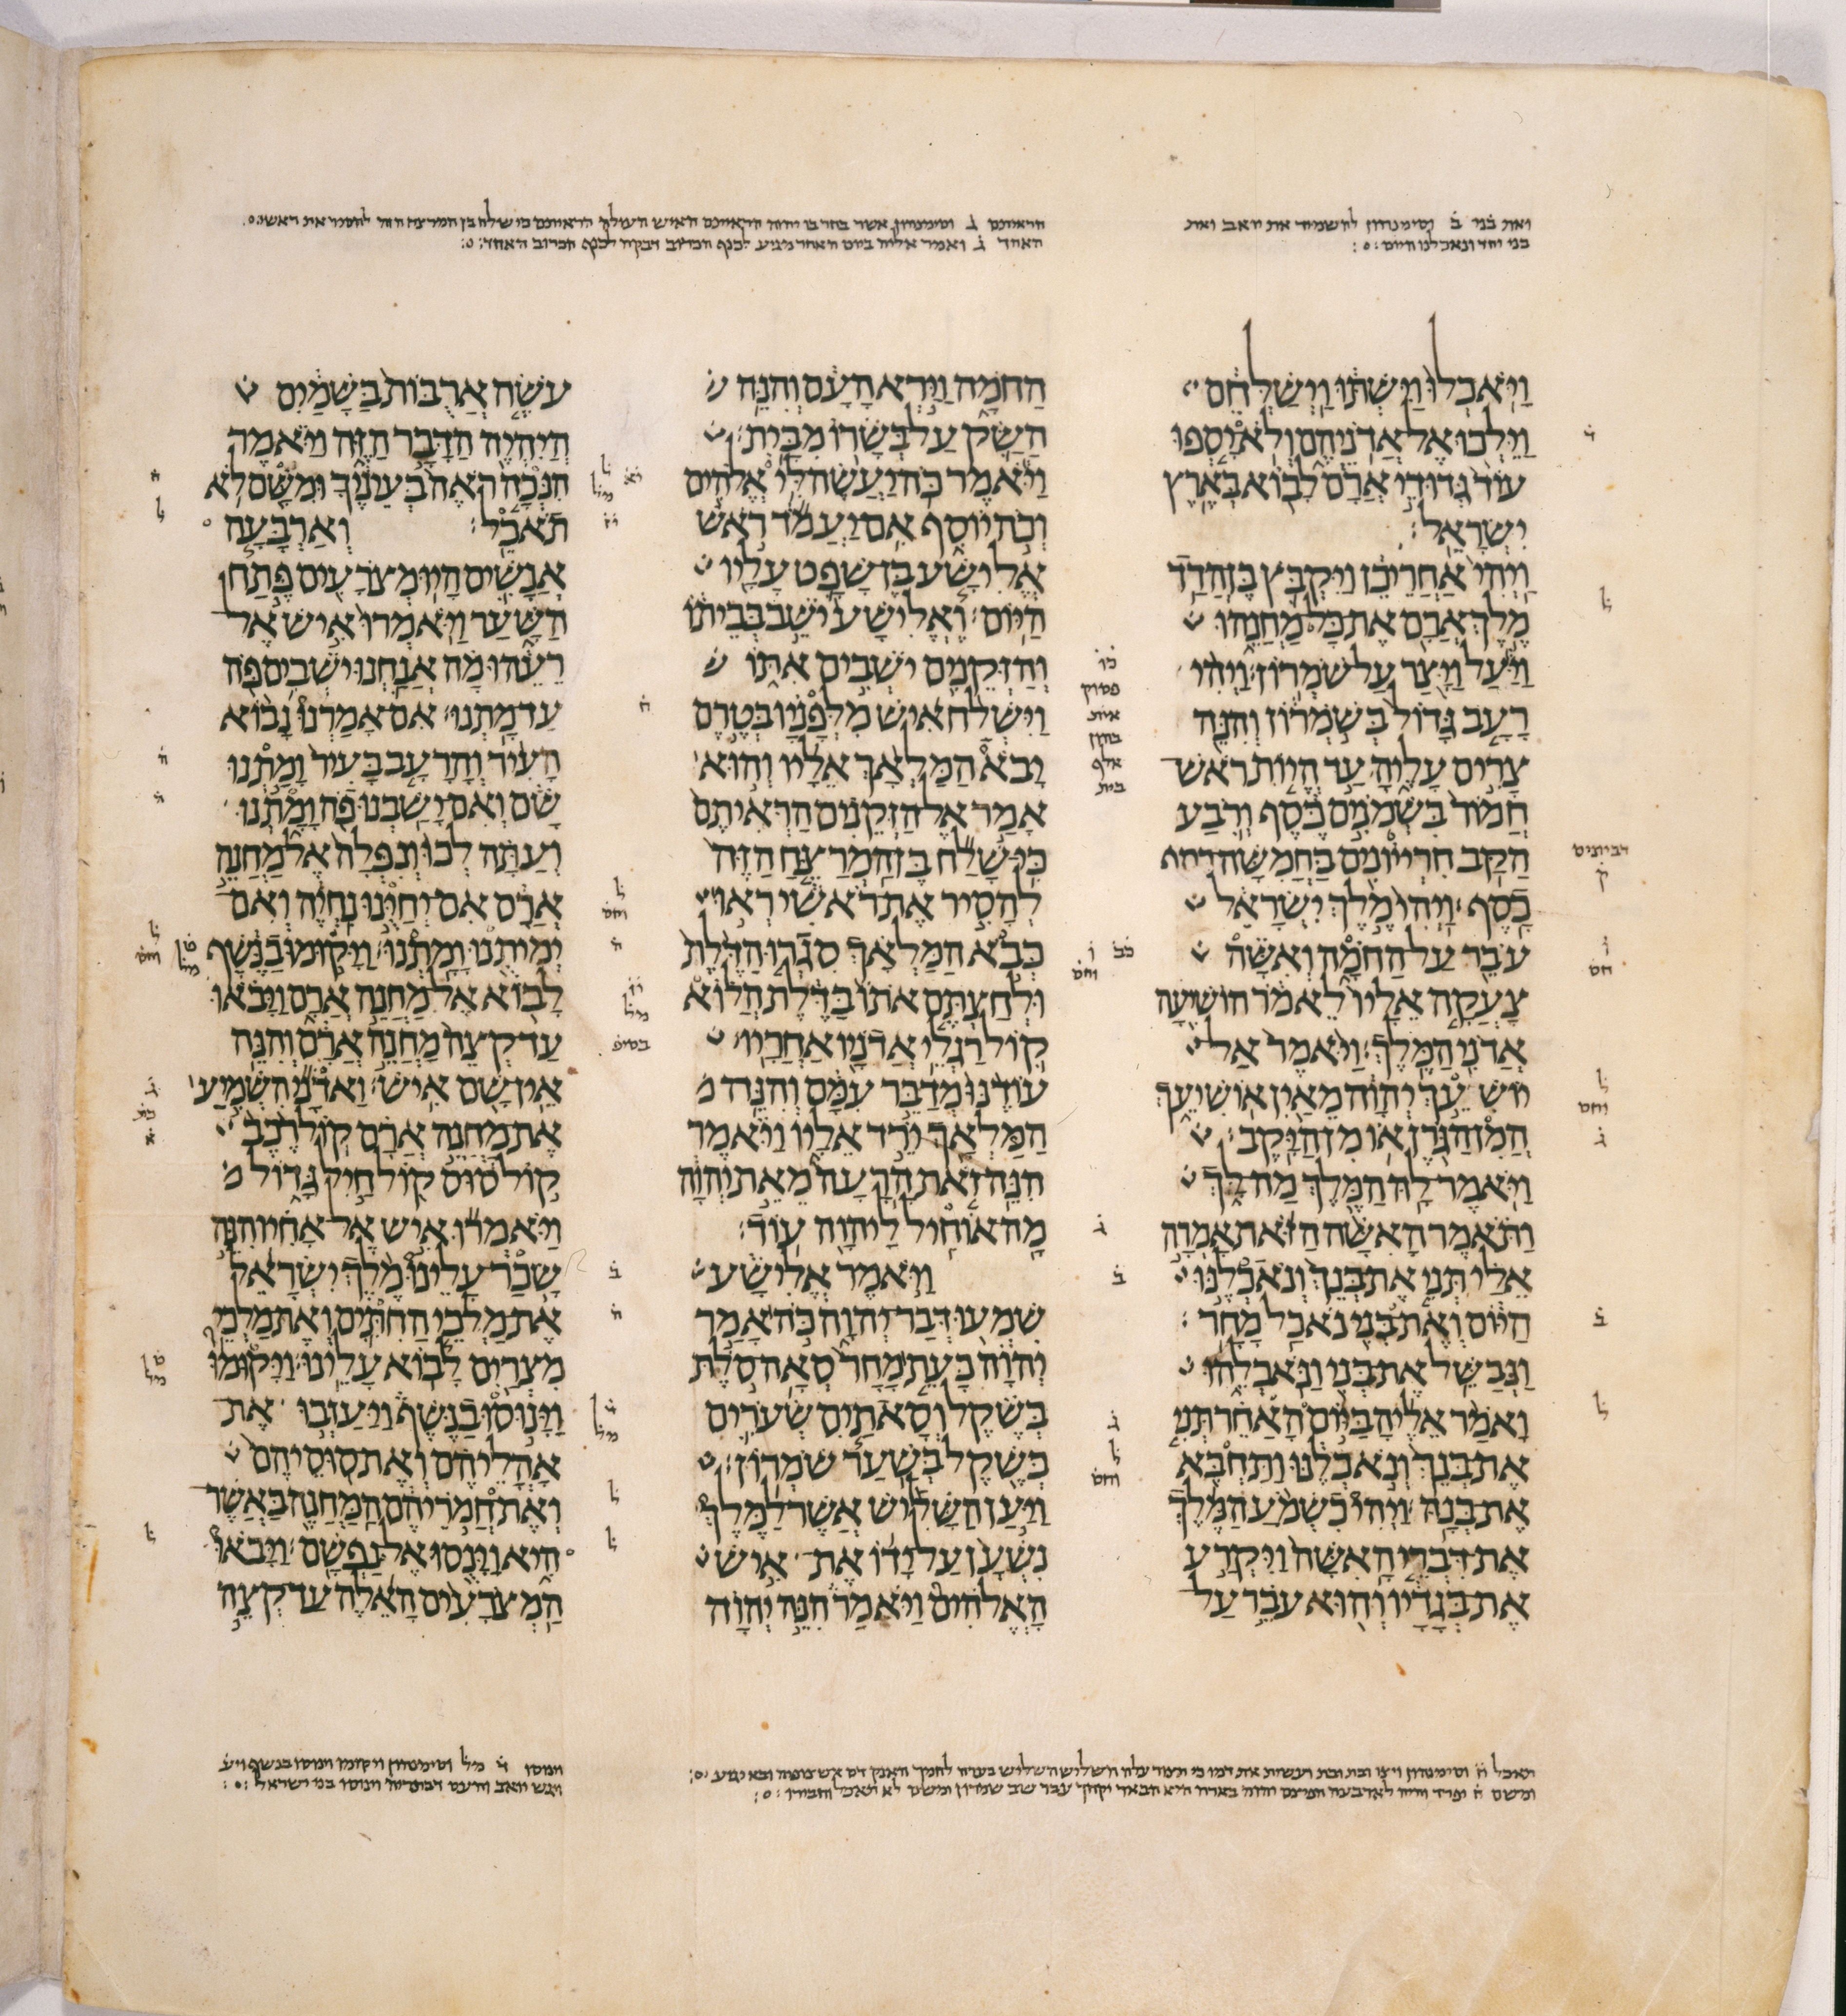 ואת בני ב וסימנהון להשמיד את יואב ואת
בני יחד ונאכלנו היום
הראיתם ג וסימנהון אשר בחר בו יהוה הראיתם האיש העולה הראיתם כי שלח בן המרצח הזה להסיר את ראשי
האחד ג ואמר אליה ביום האחד מגיע לכנף הכרוב דבקה לכנף הכרוב האחד
וַיֹּאכְלוּ וַיִּשְׁתּוּ וַיְשַׁלְּחֵם
וַיֵּלְכוּ אֶל אֲדֹנֵיהֶם וְלֹא יָסְפוּ
עוֹד גְּדוּדֵי אֲרָם לָבוֹא בְּאֶרֶץ
יִשְׂרָאֵל׃
וַיְהִי אַחֲרֵי כֵן וַיִּקְבֹּץ בֶּן הֲדַד
מֶלֶךְ אֲרָם אֶת כָּל מַחֲנֵהוּ
וַיַּעַל וַיָּצַר עַל שֹׁמְרוֹן׃ וַיְהִי
רָעָב גָּדוֹל בְּשֹׁמְרוֹן וְהִנֵּה
צָרִים עָלֶיהָ עַד הֱיוֹת רֹאשׁ
חֲמוֹר בִּשְׁמֹנִים כֶּסֶף וְרֹבַע
הַקַּב חִרְייוֹנִים בַּחֲמִשָּׁה
כָסֶף׃ וַיְהִי מֶלֶךְ יִשְׂרָאֵל
עֹבֵר עַל הַחֹמָה וְאִשָּׁה
צָעֲקָה אֵלָיו לֵאמֹר הוֹשִׁיעָה
אֲדֹנִי הַמֶּלֶךְ׃ וַיֹּאמֶר אַל
יוֹשִׁעֵךְ יְהוָה מֵאַיִן אוֹשִׁיעֵךְ
הֲמִן הַגֹּרֶן אוֹ מִן הַיָּקֶב׃
וַיֹּאמֶר לָהּ הַמֶּלֶךְ מַה לָּךְ
וַתֹּאמֶר הָאִשָּׁה הַזֹּאת אָמְרָה
אֵלַי תְּנִי אֶת בְּנֵךְ וְנֹאכְלֶנּוּ
הַיּוֹם וְאֶת בְּנִי נֹאכַל מָחָר׃
וַנְּבַשֵּׁל אֶת בְּנִי וַנֹּאכְלֵהוּ
וָאֹמַר אֵלֶיהָ בַּיּוֹם הָאַחֵר תְּנִי
אֶת בְּנֵךְ וְנֹאכְלֶנּוּ וַתַּחְבִּא
אֶת בְּנָהּ׃ וַיְהִי כִשְׁמֹעַ הַמֶּלֶךְ
אֶת דִּבְרֵי הָאִשָּׁה וַיִּקְרַע
אֶת בְּגָדָיו וְהוּא עֹבֵר עַל
הַחֹמָה וַיַּרְא הָעָם וְהִנֵּה
הַשַּׂק עַל בְּשָׂרוֹ מִבָּיִת׃
וַיֹּאמֶר כֹּה יַעֲשֶׂה לִּי אֱלֹהִים
וְכֹה יוֹסִף אִם יַעֲמֹד רֹאשׁ
אֱלִישָׁע בֶּן שָׁפָט עָלָיו
הַיּוֹם׃ וֶאֱלִישָׁע יֹשֵׁב בְּבֵיתוֹ
וְהַזְּקֵנִים יֹשְׁבִים אִתּוֹ
וַיִּשְׁלַח אִישׁ מִלְּפָנָיו בְּטֶרֶם
יָבֹא הַמַּלְאָךְ אֵלָיו וְהוּא
אָמַר אֶל הַזְּקֵנִים הַרְּאִיתֶם
כִּי שָׁלַח בֶּן הַמְרַצֵּחַ הַזֶּה
לְהָסִיר אֶת רֹאשִׁי רְאוּ
כְּבֹא הַמַּלְאָךְ סִגְרוּ הַדֶּלֶת
וּלְחַצְתֶּם אֹתוֹ בַּדֶּלֶת הֲלוֹא
קוֹל רַגְלֵי אֲדֹנָיו אַחֲרָיו׃
עוֹדֶנּוּ מְדַבֵּר עִמָּם וְהִנֵּה
הַמַּלְאָךְ יֹרֵד אֵלָיו וַיֹּאמֶר
הִנֵּה זֹאת הָרָעָה מֵאֵת יְהוָה
מָה אוֹחִיל לַיהוָה עוֹד׃
וַיֹּאמֶר אֱלִישָׁע
שִׁמְעוּ דְּבַר יְהוָה כֹּה אָמַר
יְהוָה כָּעֵת מָחָר סְאָה סֹלֶת
בְּשֶׁקֶל וְסָאתַיִם שְׂעֹרִים
בְּשֶׁקֶל בְּשַׁעַר שֹׁמְרוֹן׃
וַיַּעַן הַשָּׁלִישׁ אֲשֶׁר לַמֶּלֶךְ
נִשְׁעָן עַל יָדוֹ אֶת אִישׁ
הָאֱלֹהִים וַיֹּאמַר הִנֵּה יְהוָה
עֹשֶׂה אֲרֻבּוֹת בַּשָּׁמַיִם
הֲיִהְיֶה הַדָּבָר הַזֶּה וַיֹּאמֶר
הִנְּכָה רֹאֶה בְּעֵינֶיךָ וּמִשָּׁם לֹא
תֹאכֵל׃ וְאַרְבָּעָה
אֲנָשִׁים הָיוּ מְצֹרָעִים פֶּתַח
הַשָּׁעַר וַיֹּאמְרוּ אִישׁ אֶל
רֵעֵהוּ מָה אֲנַחְנוּ יֹשְׁבִים פֹּה
עַד מָתְנוּ׃ אִם אָמַרְנוּ נָבוֹא
הָעִיר וְהָרָעָב בָּעִיר וָמַתְנוּ
שָׁם וְאִם יָשַׁבְנוּ פֹה וָמָתְנוּ
וְעַתָּה לְכוּ וְנִפְּלָה אֶל מַחֲנֵה
אֲרָם אִם יְחַיֻּנוּ נִחְיֶה וְאִם
יְמִיתֻנוּ וָמָתְנוּ׃ וַיָּקוּמוּ בַנֶּשֶׁף
לָבוֹא אֶל מַחֲנֵה אֲרָם וַיָּבֹאוּ
עַד קְצֵה מַחֲנֵה אֲרָם וְהִנֵּה
אֵין שָׁם אִישׁ׃ וַאדֹנָי הִשְׁמִיעַ
אֶת מַחֲנֵה אֲרָם קוֹל רֶכֶב
קוֹל סוּס קוֹל חַיִל גָּדוֹל
וַיֹּאמְרוּ אִישׁ אֶל אָחִיו הִנֵּה
שָׂכַר עָלֵינוּ מֶלֶךְ יִשְׂרָאֵל
אֶת מַלְכֵי הַחִתִּים וְאֶת מַלְכֵי
מִצְרַיִם לָבוֹא עָלֵינוּ׃ וַיָּקוּמוּ
וַיָּנוּסוּ בַנֶּשֶׁף וַיַּעַזְבוּ אֶת
אָהֳלֵיהֶם וְאֶת סוּסֵיהֶם
וְאֶת חֲמֹרֵיהֶם הַמַּחֲנֶה כַּאֲשֶׁר
הִיא וַיָּנֻסוּ אֶל נַפְשָׁם׃ וַיָּבֹאוּ
הַמְצֹרָעִים הָאֵלֶּה עַד קְצֵה
דביונים
ק
כו
פסוק
אית
בהון
אלף
בית
תאכל ח וסימנהון
ומשם ח יפרד והיה לארבעה
וינוסו ד מל וסימנהון ויקומו וינוסו בנשף
ויגש יואב והעם וינוסו בני ישראל